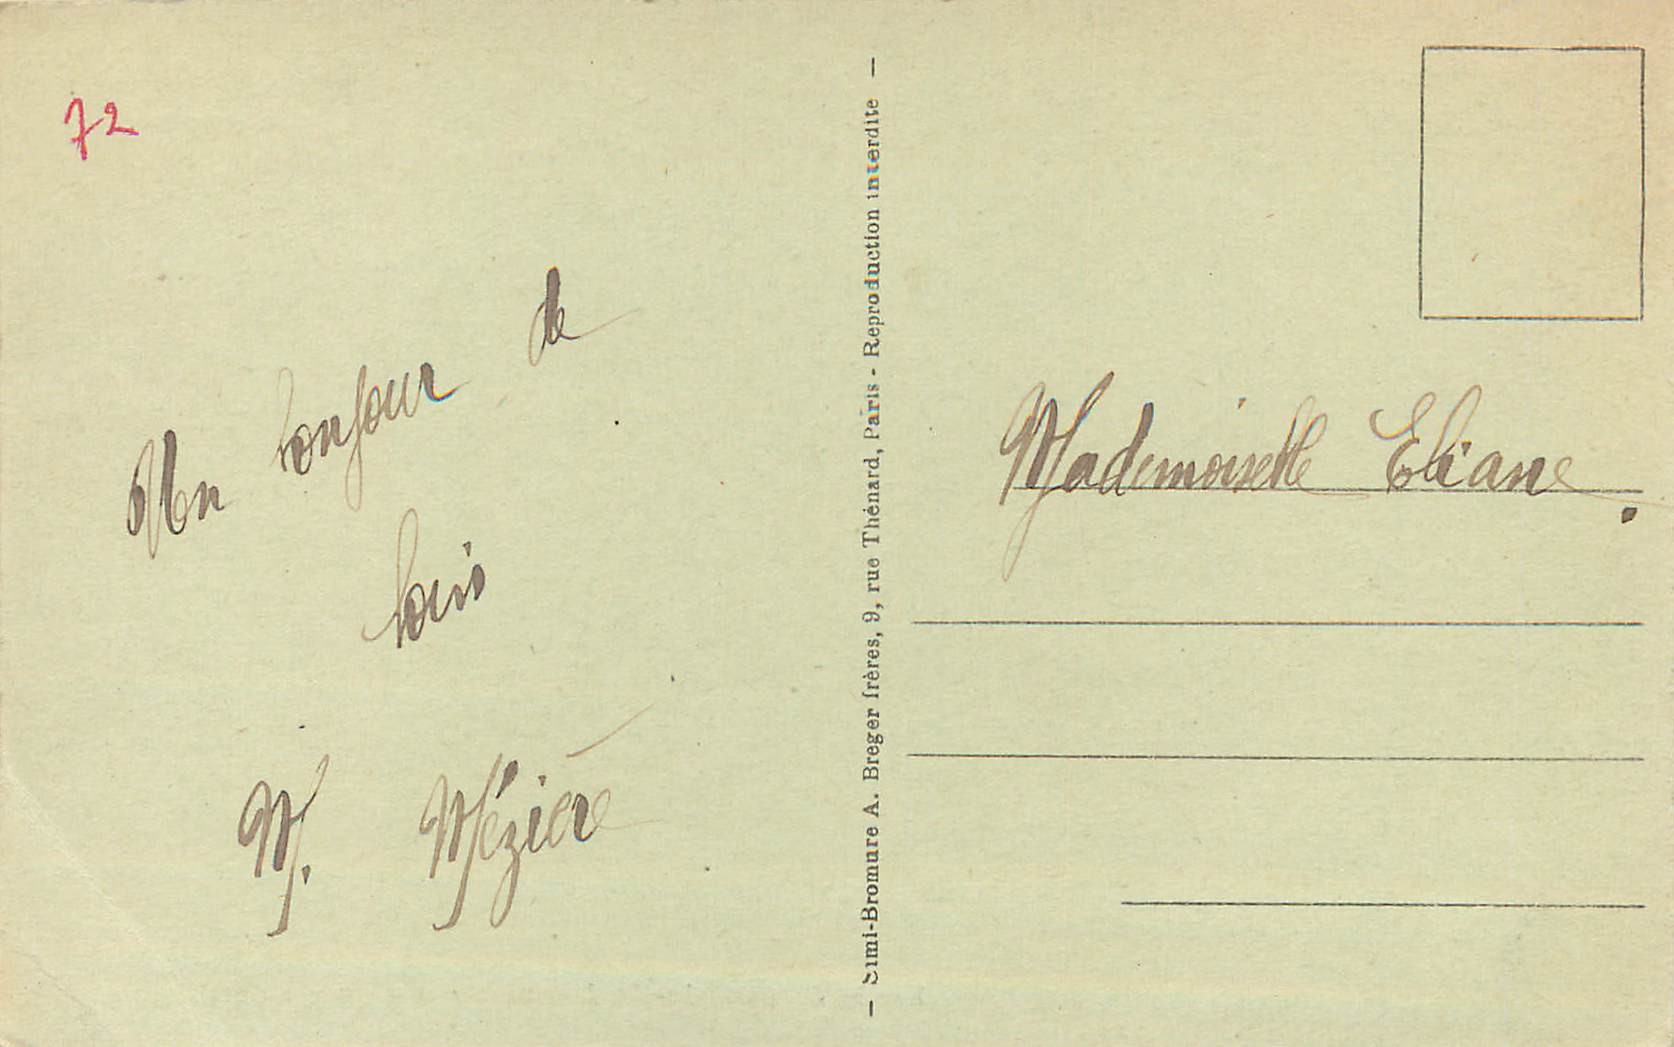 72
Un bonjour de
loin
M. Mézière
— Simi-Bromure A. Breger frères, 9, rue Thénard, Paris - Reproduction interdite —
Mademoiselle Eliane.